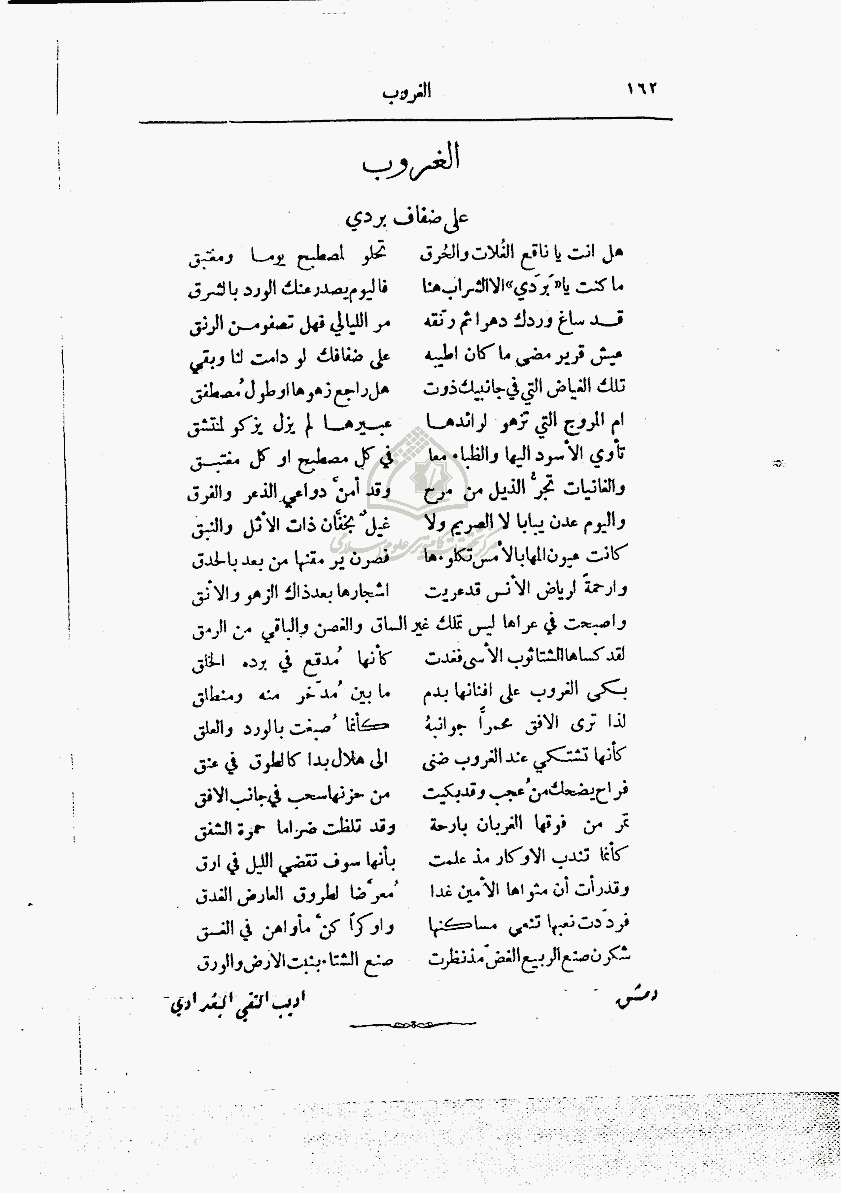 ١٦٢ الغروب
الغروب
على ضفاف بردي
هل انت يا ناقع الغُلات والحُرق تحلو لمصطبح يومـا ومغتبق
ما كنت يا «بَرَدي» الا الشراب هنا فاليوم يصدر عنك الورد بالشرق
قـد ساغ وردك دهرا ثم رنّقه مر الليالي فهل تصفو مـن الرنق
عيش قرير مضى ما كان اطيبه على ضفافك لو دامت لنا وبقي
تلك الغياض التي في جانبيك ذوت هل راجع زهوها او طول مُصطفق
ام المروج التي تزهو لرائدهـا عبـيرهـا لم يزل يزكو لمنتشق
تأوي الأسود اليها والظباء معا في كل مصطبح او كل مغتبـق
والغانيات تجرُّ الذيل من مرح وقد أمنَّ دواعي الذعر والفرق
واليوم عدن يبابا لا الصريم ولا غيلٌ بخفَّان ذات الأثل والنبق
كانت عيون المها بالأمس تكلوءها فصرن يرمقنها من بعد بالحدق
وارحمةً لرياض الأنس قد عريت اشجارها بعد ذاك الزهو والأنق
واصبحت في عراها ليس تملك غير الساق والغصن والباقي من الرمق
لقد كساها الشتا ثوب الأسى فغدت كأنها مُدقع في برده الخلق
يبـكي الغروب على افنانها بدم ما بين مُدّخر منه ومنطلق
لذا ترى الافق محمراً جوانبهُ كـأنما صُبغت بالورد والعلق
كأنها تشتـكي عند الغروب ضنى الى هلال بدا كالطوق في عنق
فراح يضحك من عُجب وقد بكيت من حزنها سحب في جانب الافق
تمر من فوقها الغربان بارحة وقد تلظت ضراما حمرة الشفق
كأنما تندب الاوكار مذ علمت بأنها سوف تقضي الليل في ارق
وقد رأت أن مثواها الأمين غدا مُعرّضا لطروق العارض الغدق
فردّدت نعبها تنعى مساكنها واوكراً كنَّ مأواهن في الغسـق
شكرن صنع الربيع الغضّ مذ نظرت صنع الشتاء بنبت الارض والورق
دمشق اديب التقي البغدادي